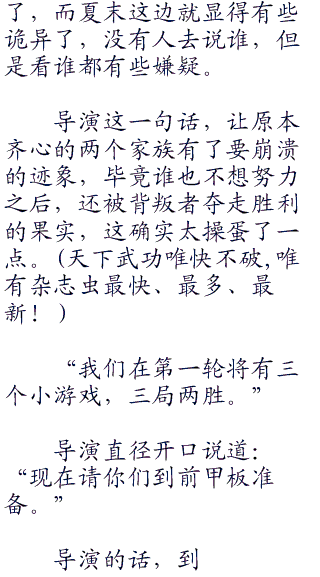 了，而夏末这边就显得有些
诡异了，没有人去说谁，但
是看谁都有些嫌疑。
导演这一句话，让原本
齐心的两个家族有了要崩溃
的迹象，毕竟谁也不想努力
之后，还被背叛者夺走胜利
的果实，这确实太操蛋了一
点。(天下武功唯快不破,唯
有杂志虫最快、最多、最
新！)
“我们在第一轮将有三
个小游戏，三局两胜。”
导演直径开口说道：
“现在请你们到前甲板准
备。”
导演的话，到